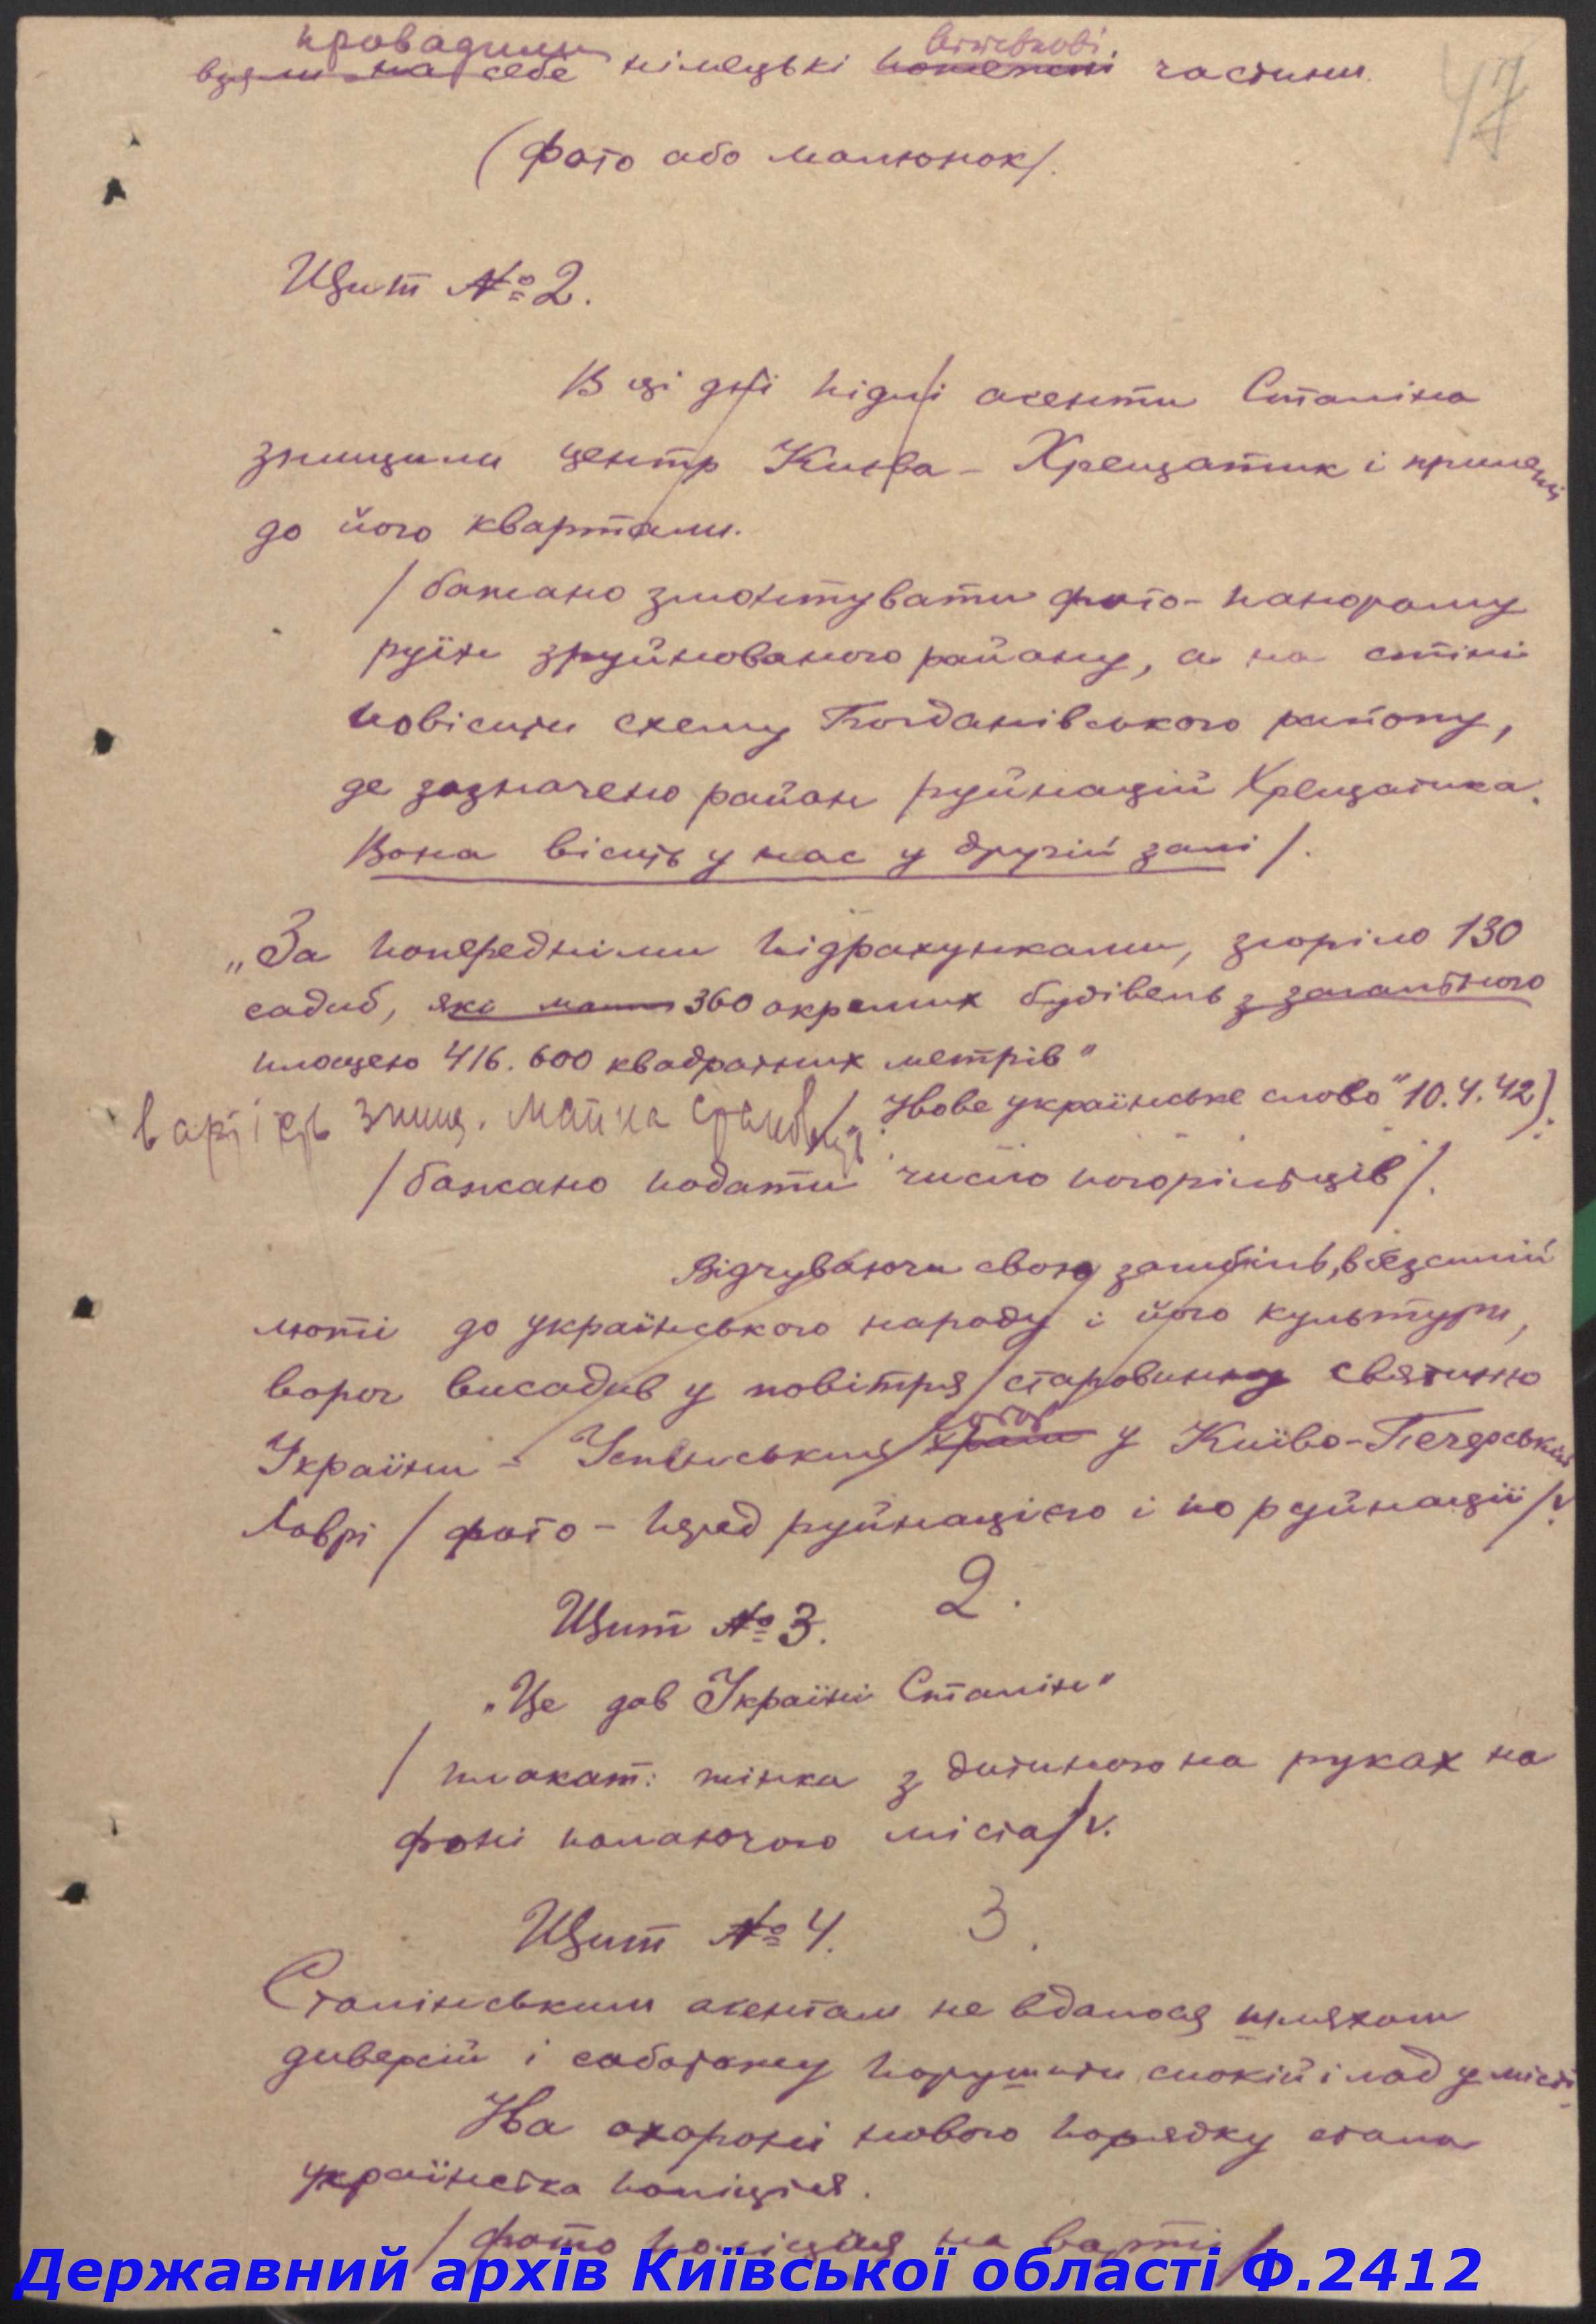 провадили вогневкові
взяли на себе німецькі пожежні частини.
47
(фото або малюнок).
Щит № 2.
В ці дні підлі агенти Сталіна
знищили центр Києва – Хрещатик і прилеглі
до його квартали.
/ бажано змонтувати фото-панораму
руїн зруйнованого району, а на стіні
повісити схему Богданівського району,
де зазначено район руйнацій Хрещатика.
Вона висить у нас у другій залі /.
„За попередніми підрахунками, згоріло 130
садиб, які мали 360 окремих будівель з загальною
площею 416.600 квадратних метрів"
/„Нове українське слово" 10.4.42).
вартість знищ. майна становить
/ бажано подати число погорільців /.
Відчуваючи свою загибель, в безсилій
люті до українського народу і його культури,
ворог висадив у повітря старовинну святиню
собор
України – Успенський храм у Київо-Печерській
Лаврі / фото – перед руйнацією і по руйнації / v.
Щит № 3. 2.
„Це дав Україні Сталін"
/ плакат: жінка з дитиною на руках на
фоні палаючого міста / v.
Щит № 4. 3.
Сталінським агентам не вдалося шляхом
диверсій і саботажу порушити спокій і лад у місті.
На охороні нового порядку стала
українська поліція.
/ фото поліцая на варті /
Державний архів Київської області Ф.2412